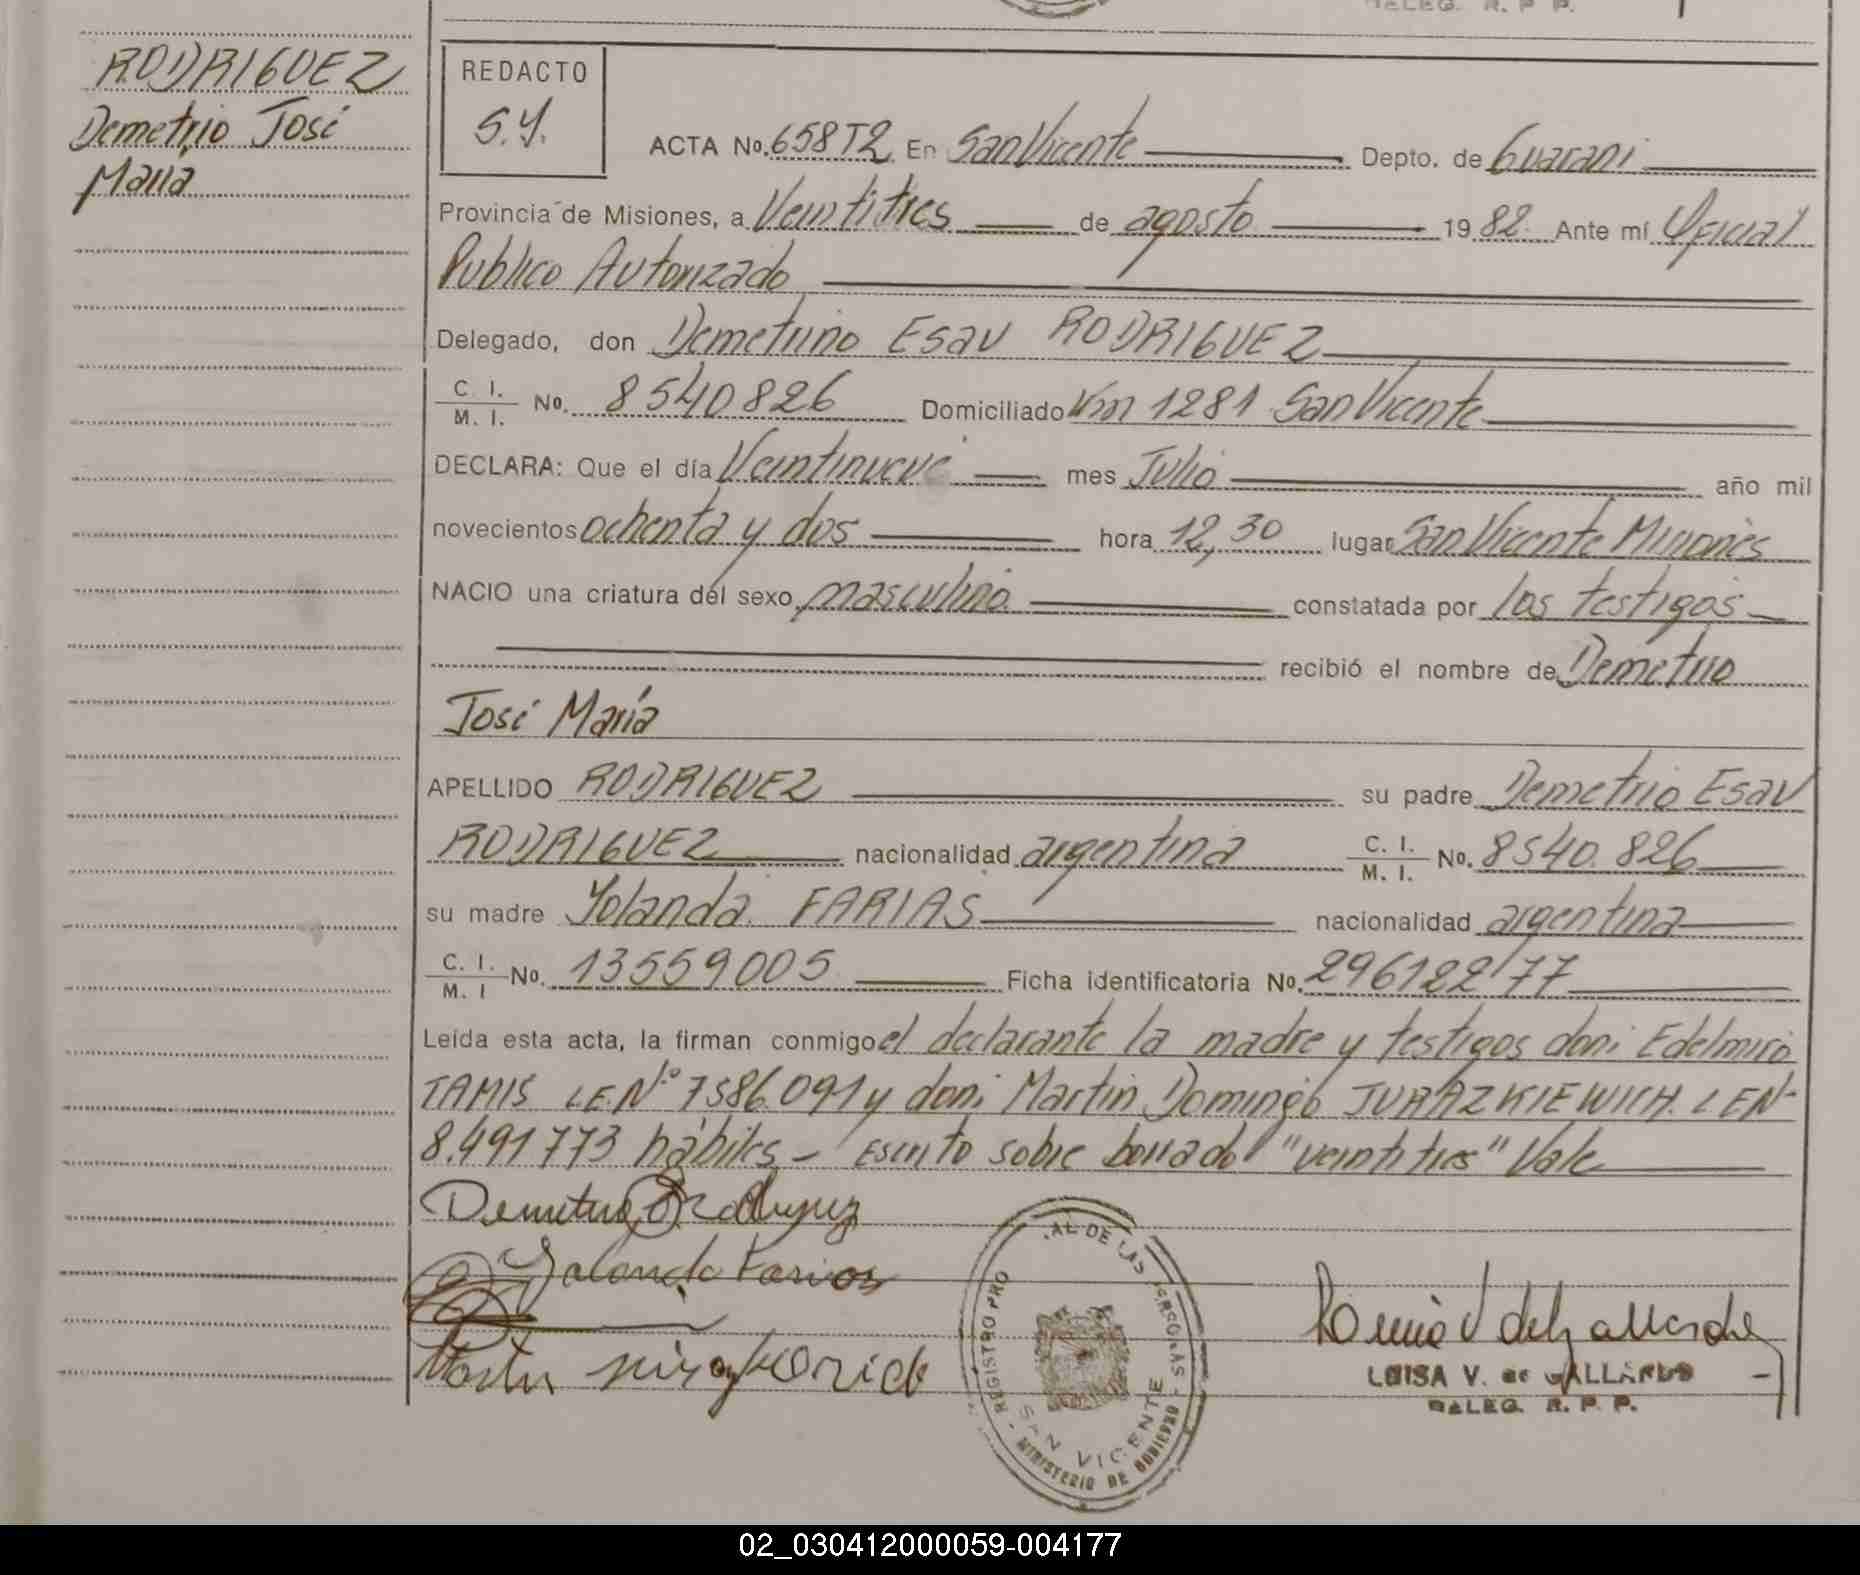 DELEG. R. P. P.
RODRIGUEZ
Demetrio José
María
REDACTO
S.Y.
ACTA No. 658T2 En San Vicente Depto. de Guarani
Provincia de Misiones, a Veintitres de agosto 1982. Ante mí Oficial
Publico Autorizado
Delegado, don Demetrio Esau RODRIGUEZ
C. I. / M. I. No. 8540826 Domiciliado Km 1281 San Vicente
DECLARA: Que el día Veintinueve mes Julio año mil
novecientos ochenta y dos hora 12,30 lugar San Vicente Misiones
NACIO una criatura del sexo masculino constatada por los testigos
recibió el nombre de Demetrio
José María
APELLIDO RODRIGUEZ su padre Demetrio Esau
RODRIGUEZ nacionalidad argentina C. I. / M. I. No. 8540.826
su madre Yolanda FARIAS nacionalidad argentina
C. I. / M. I No. 13559005 Ficha identificatoria No. 296122/77
Leída esta acta, la firman conmigo el declarante la madre y testigos don: Edelmiro
TAMIS LE.Nº 7586.091 y don: Martin Domingo JURAZKIEWICH. LEN-
8.491773 hábiles - Escrito sobre borrado "veintitres" Vale
Yolanda Farias
REGISTRO PRO AL DE LAS PERSONAS - MINISTERIO DE GOBIERNO -
SAN VICENTE
LUISA V. de GALLARDO
DELEG. R. P. P.
02_030412000059-004177